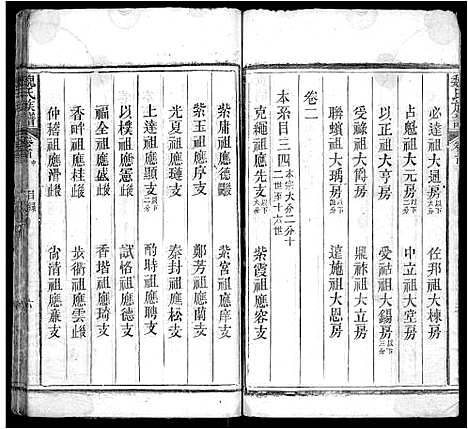 必達祖大週房 佐邦祖大棟房
占魁祖大元房 中立祖大堂房
以正祖大亨房 受祜祖大錫房
受祿祖大爵房 祖大立房
聯蠙祖大瑀房 遠施祖大恩房
卷二
本系目三四 本宗大分二分十二世至十六世
克繩祖應先支 紫霞祖應容支
紫庸祖應德 紫宮祖應庠支
紫玉祖應序支 鄭芳祖應蘭支
光夏祖應璉支 秦封祖應松支
上達祖應顯支 酌時祖應聘支
以樸祖應 支 試恪祖應德支
福全祖應盛 香塔祖應琦支
香畔祖應桂 步衢祖應雲
仲稽祖應滑 尚清祖應廉支
魏氏族譜
卷首
目錄
六